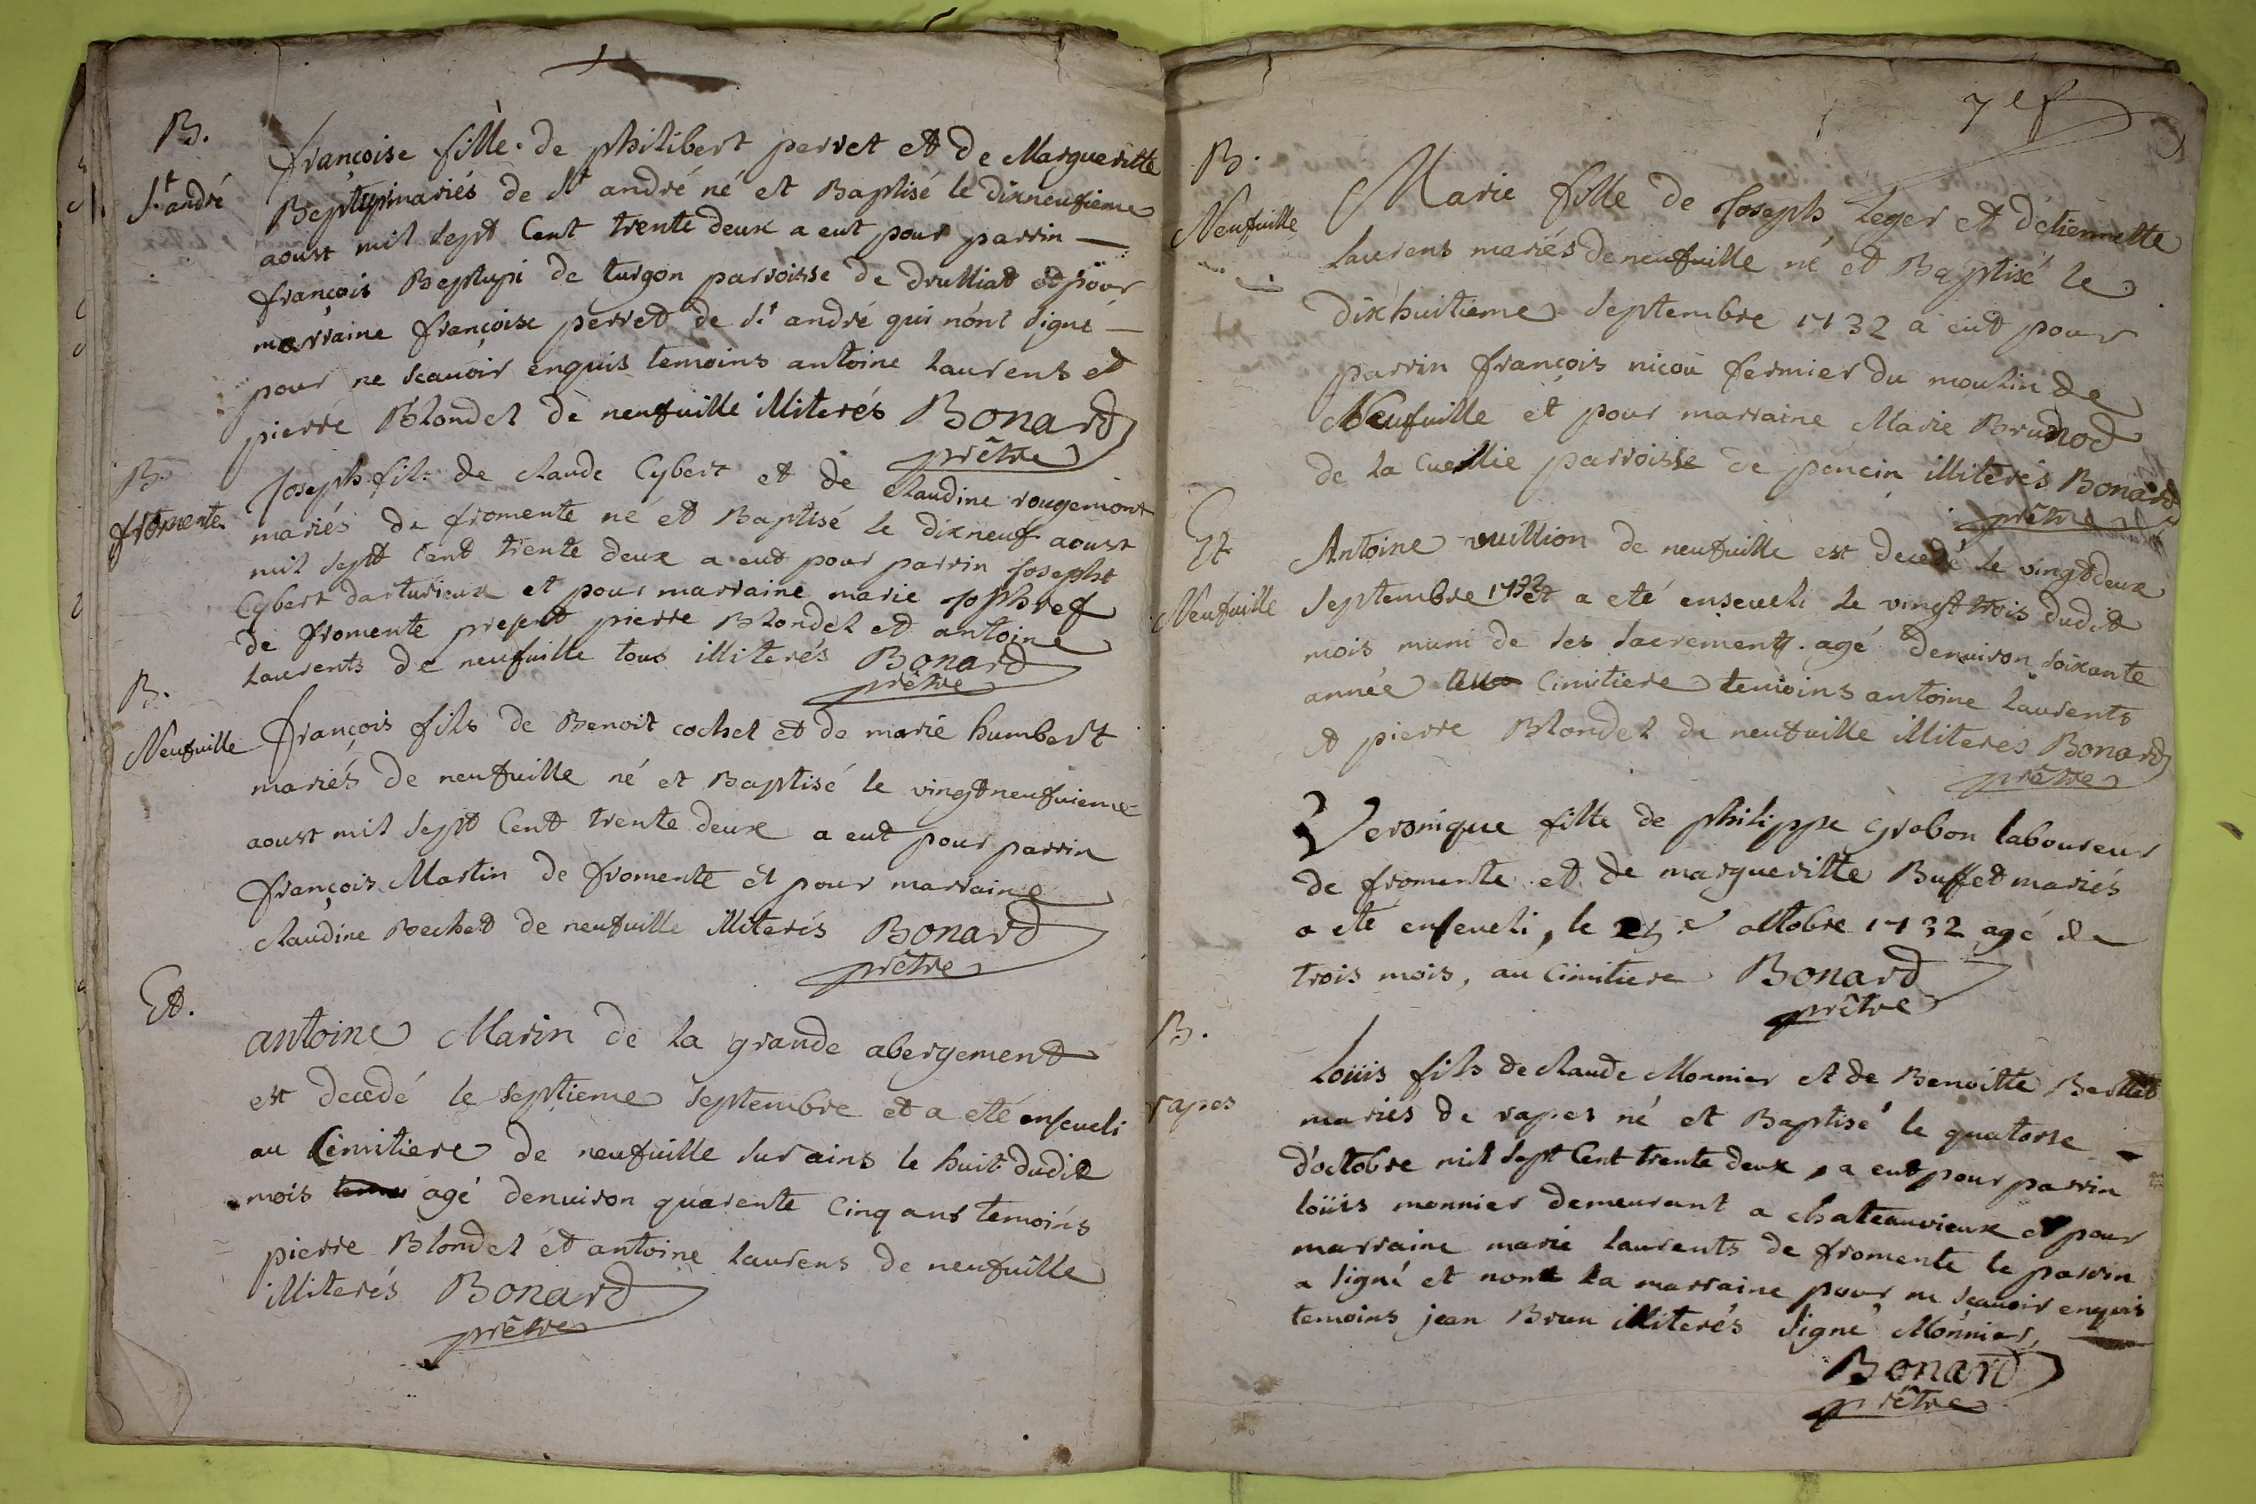 B.
St andré
françoise fille de philibert perret et de Margueritte
Beptupi mariés de St andré né et Baptisé le dixneufieme
aoust mil sept Cent trente deux a eut pour parrin
françois Beptupi de turgon parroisse de druilliat et pour
marraine françoise perret de St andré qui n'ont signé
pour ne scauoir enquis temoins antoine Laurens et
pierre Blondel de neufuille illiterés Bonard
prêtre
B.
fromente
Joseph fils de claude Cybert et de claudine rougemont
mariés de fromente né et Baptisé le dixneuf aoust
mil sept Cent trente deux a eut pour parrin Josepht
Cybert darturieux et pour marraine marie
de fromente present pierre Blondel et antoine
Laurents de neufuille tous illiterés Bonard
prêtre
B.
Neufuille
françois fils de Benoit cochet et de marie humbert
mariés de neufuille né et Baptisé le vingtneufuieme
aoust mil sept Cent trente deux a eut pour parrin
françois Martin de fromente et pour marraine
claudine Bechet de neufuille illiterés Bonard
prêtre
Et.
antoine Marin de la grande abergement
est decedé le septieme septembre et a eté enseueli
au Cimitiere de neufuille sur ains le huit dudit
mois agé denuiron quarente Cinq ans temoins
pierre Blondel et antoine Laurens de neufuille
illiterés Bonard
prêtre
7 e f
B.
Neufuille
Marie fille de Joseph Leger et d'etiennette
Laurens mariés de neufuille né et Baptisé le
dixhuitieme septembre 1732 a eut pour
parrin françois nicou fermier du moulin de
Neufuille et pour marraine Marie Brunod
de la Cueillie parroisse de poncin illiterés Bonard
prêtre
Et
Neufuille
Antoine vuillion de neufuille est decedé le vingtdeux
septembre 1732 et a eté enseueli le vingt trois dudit
mois muni de ses sacrements. agé denuiron soixante
année au Cimitiere temoins antoine Laurents
et pierre Blondel de neufuille illiterés Bonard
prêtre
Veronique fille de philippe grobon laboureur
de fromente et de margueritte Buffet mariés
a eté enseueli, le octobre 1732 agé de
trois mois, au Cimitiere Bonard
prêtre
B.
rapes
Loüis fils de claude Monnier et de Benoitte Berthet
mariés de rapes né et Baptisé le quatorse
d'octobre mil sept Cent trente deux, a eut pour parrin
loüis monnier demeurant a chateauvieux et pour
marraine marie laurents de fromente le parrin
a signé et non la marraine pour ne scauoir enquis
temoins jean Brun illiterés signé Monnier,
Bonard
prêtre